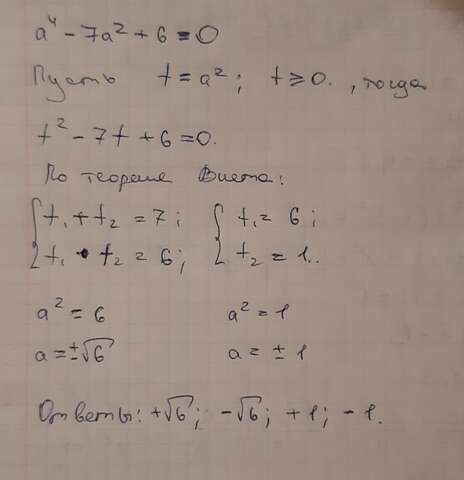 a⁴ - 7a² + 6 = 0
Пусть t = a²; t ≥ 0. , тогда
t² - 7t + 6 = 0.
По теореме Виета:
{ t₁ + t₂ = 7; { t₁ = 6;
{ t₁ · t₂ = 6; { t₂ = 1..
a² = 6 a² = 1
a = ±√6 a = ± 1
Ответы: +√6; -√6; +1; -1.